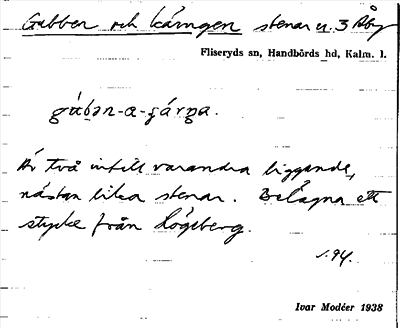 Gubben och kärngen stenar u. 3 Åby
Fliseryds sn, Handbörds hd, Kalm. l.
Är två intill varandra liggande,
nästan lika stenar. Belägna ett
stycke från Högeberg.
s. 94.
Ivar Modéer 1938